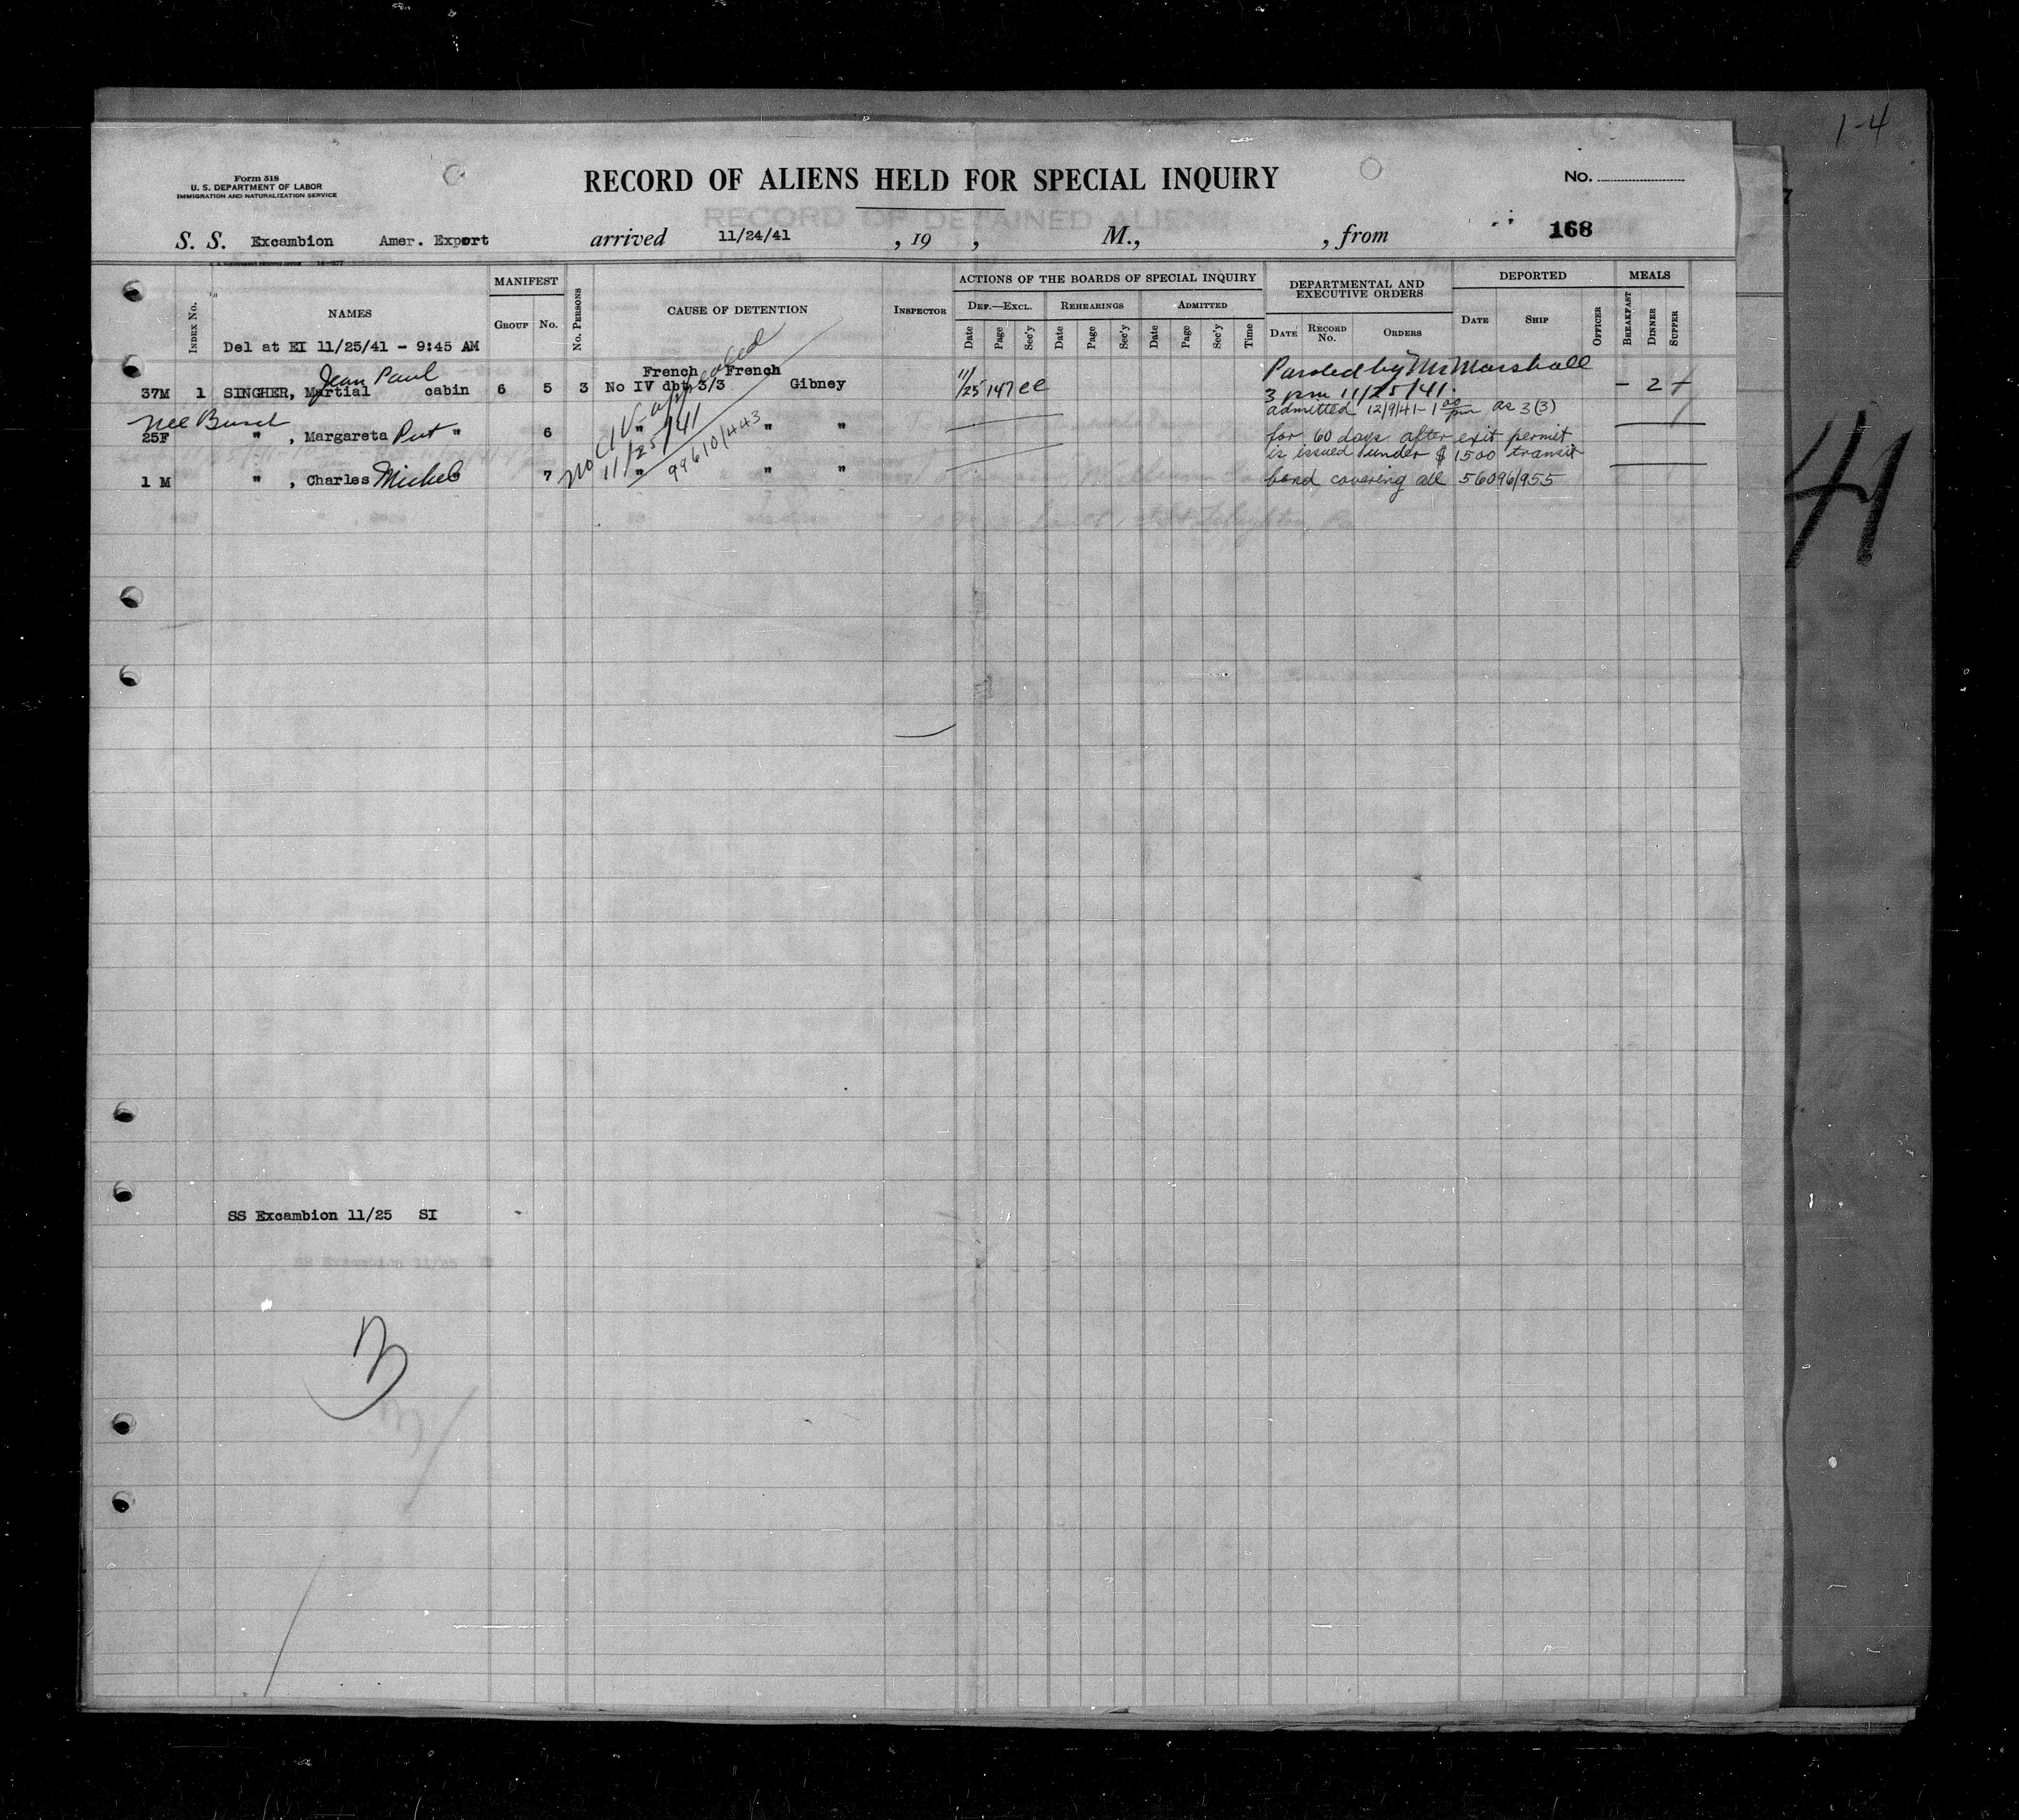 1-4
Form 518
U. S. DEPARTMENT OF LABOR
IMMIGRATION AND NATURALIZATION SERVICE
RECORD OF ALIENS HELD FOR SPECIAL INQUIRY
No.
RECORD OF DETAINED ALIENS
S. S. Excambion Amer. Export arrived 11/24/41 , 19 , M., , from 168
INDEX No. NAMES MANIFEST GROUP NO. NO. PERSONS CAUSE OF DETENTION INSPECTOR
ACTIONS OF THE BOARDS OF SPECIAL INQUIRY
DEF.—EXCL. REHEARINGS ADMITTED
Date Page Sec'y Date Page Sec'y Date Page Sec'y Time
DEPARTMENTAL AND EXECUTIVE ORDERS
DATE RECORD NO. ORDERS
DEPORTED
DATE SHIP OFFICER
MEALS
BREAKFAST DINNER SUPPER
Del at EI 11/25/41 - 9:45 AM
Jean Paul French French
37M 1 SINGHER, Martial cabin 6 5 3 No IV dbt 3/3 Gibney 11/25 147 ee
Paroled by Mr Marshall
3 pm 11/25/41. - 2 +
admitted 12/9/41 - 1 00 pm as 3(3)
Nee Busch
25F " , Margareta " 6 " " "
for 60 days after exit permit
is issued under $1500 transit
1 M " , Charles Michel 7 " " "
bond covering all 56096/955
No CIV appealed
11/25/41
99610/443
41
SS Excambion 11/25 SI